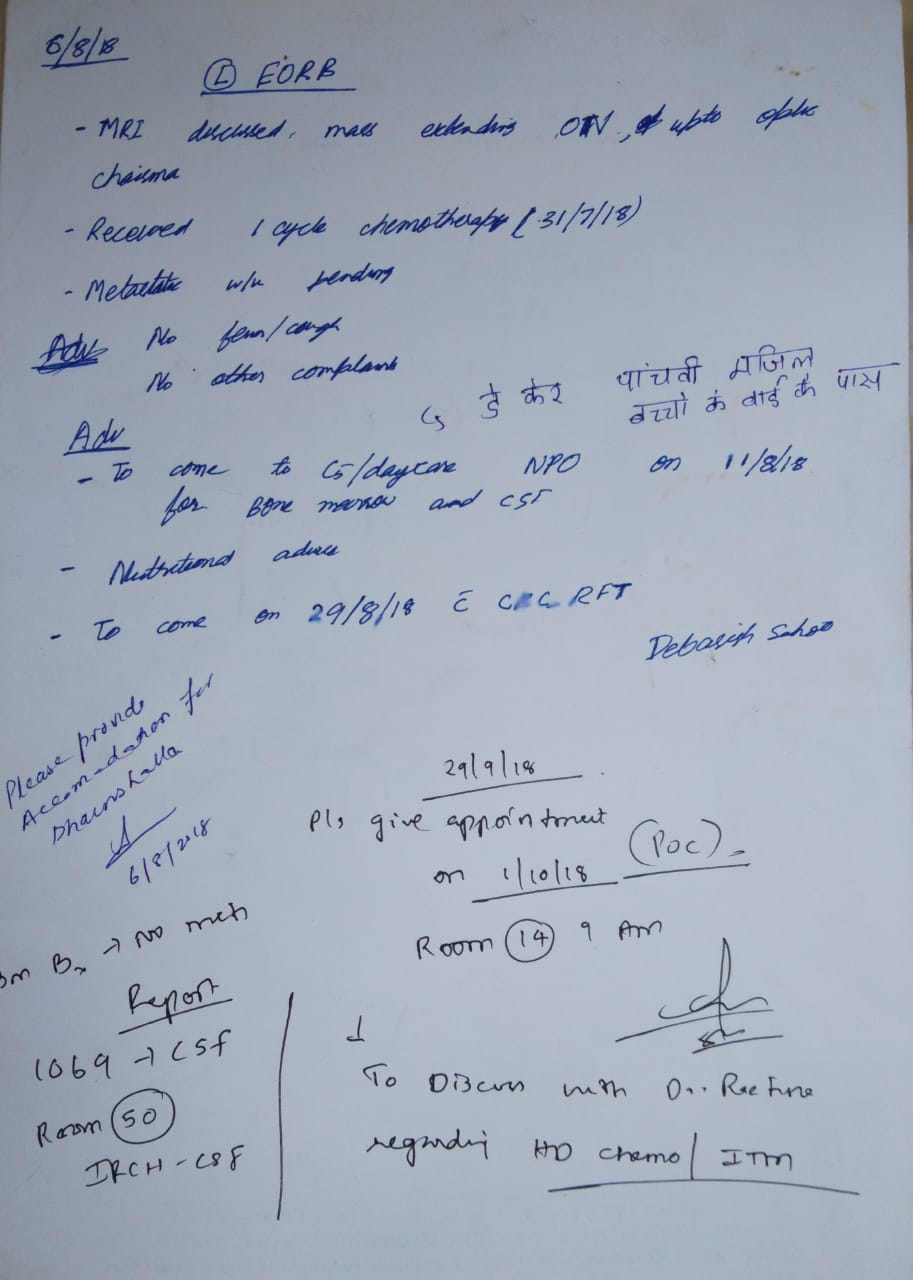 6/8/18
Ⓛ EORB
- MRI discussed, mass extending ON, upto optic
chaisma
- Received 1 cycle chemotherapy (31/7/18)
- Metastatic w/u pending
Adv No fever/cough
No other complaints
↳ डे केर पांचवी मंजिल
बच्चो के वार्ड के पास
Adv
- To come to C5/daycare NPO on 11/8/18
for Bone marrow and CSF
- Nutritional advice
- To come on 29/8/18 c̄ CBC RFT
Debasish Sahoo
Please provide
Accomodation for
Dharmshalla
6/8/2018
29/9/18
Pls give appointment
on 1/10/18 (POC)
Room 14 9 AM
Bm Bx → No mets
Report
1069 → CSF
Room 50
IRCH - CSF
↓
To Discuss with Dr.
regarding HD chemo/ITM